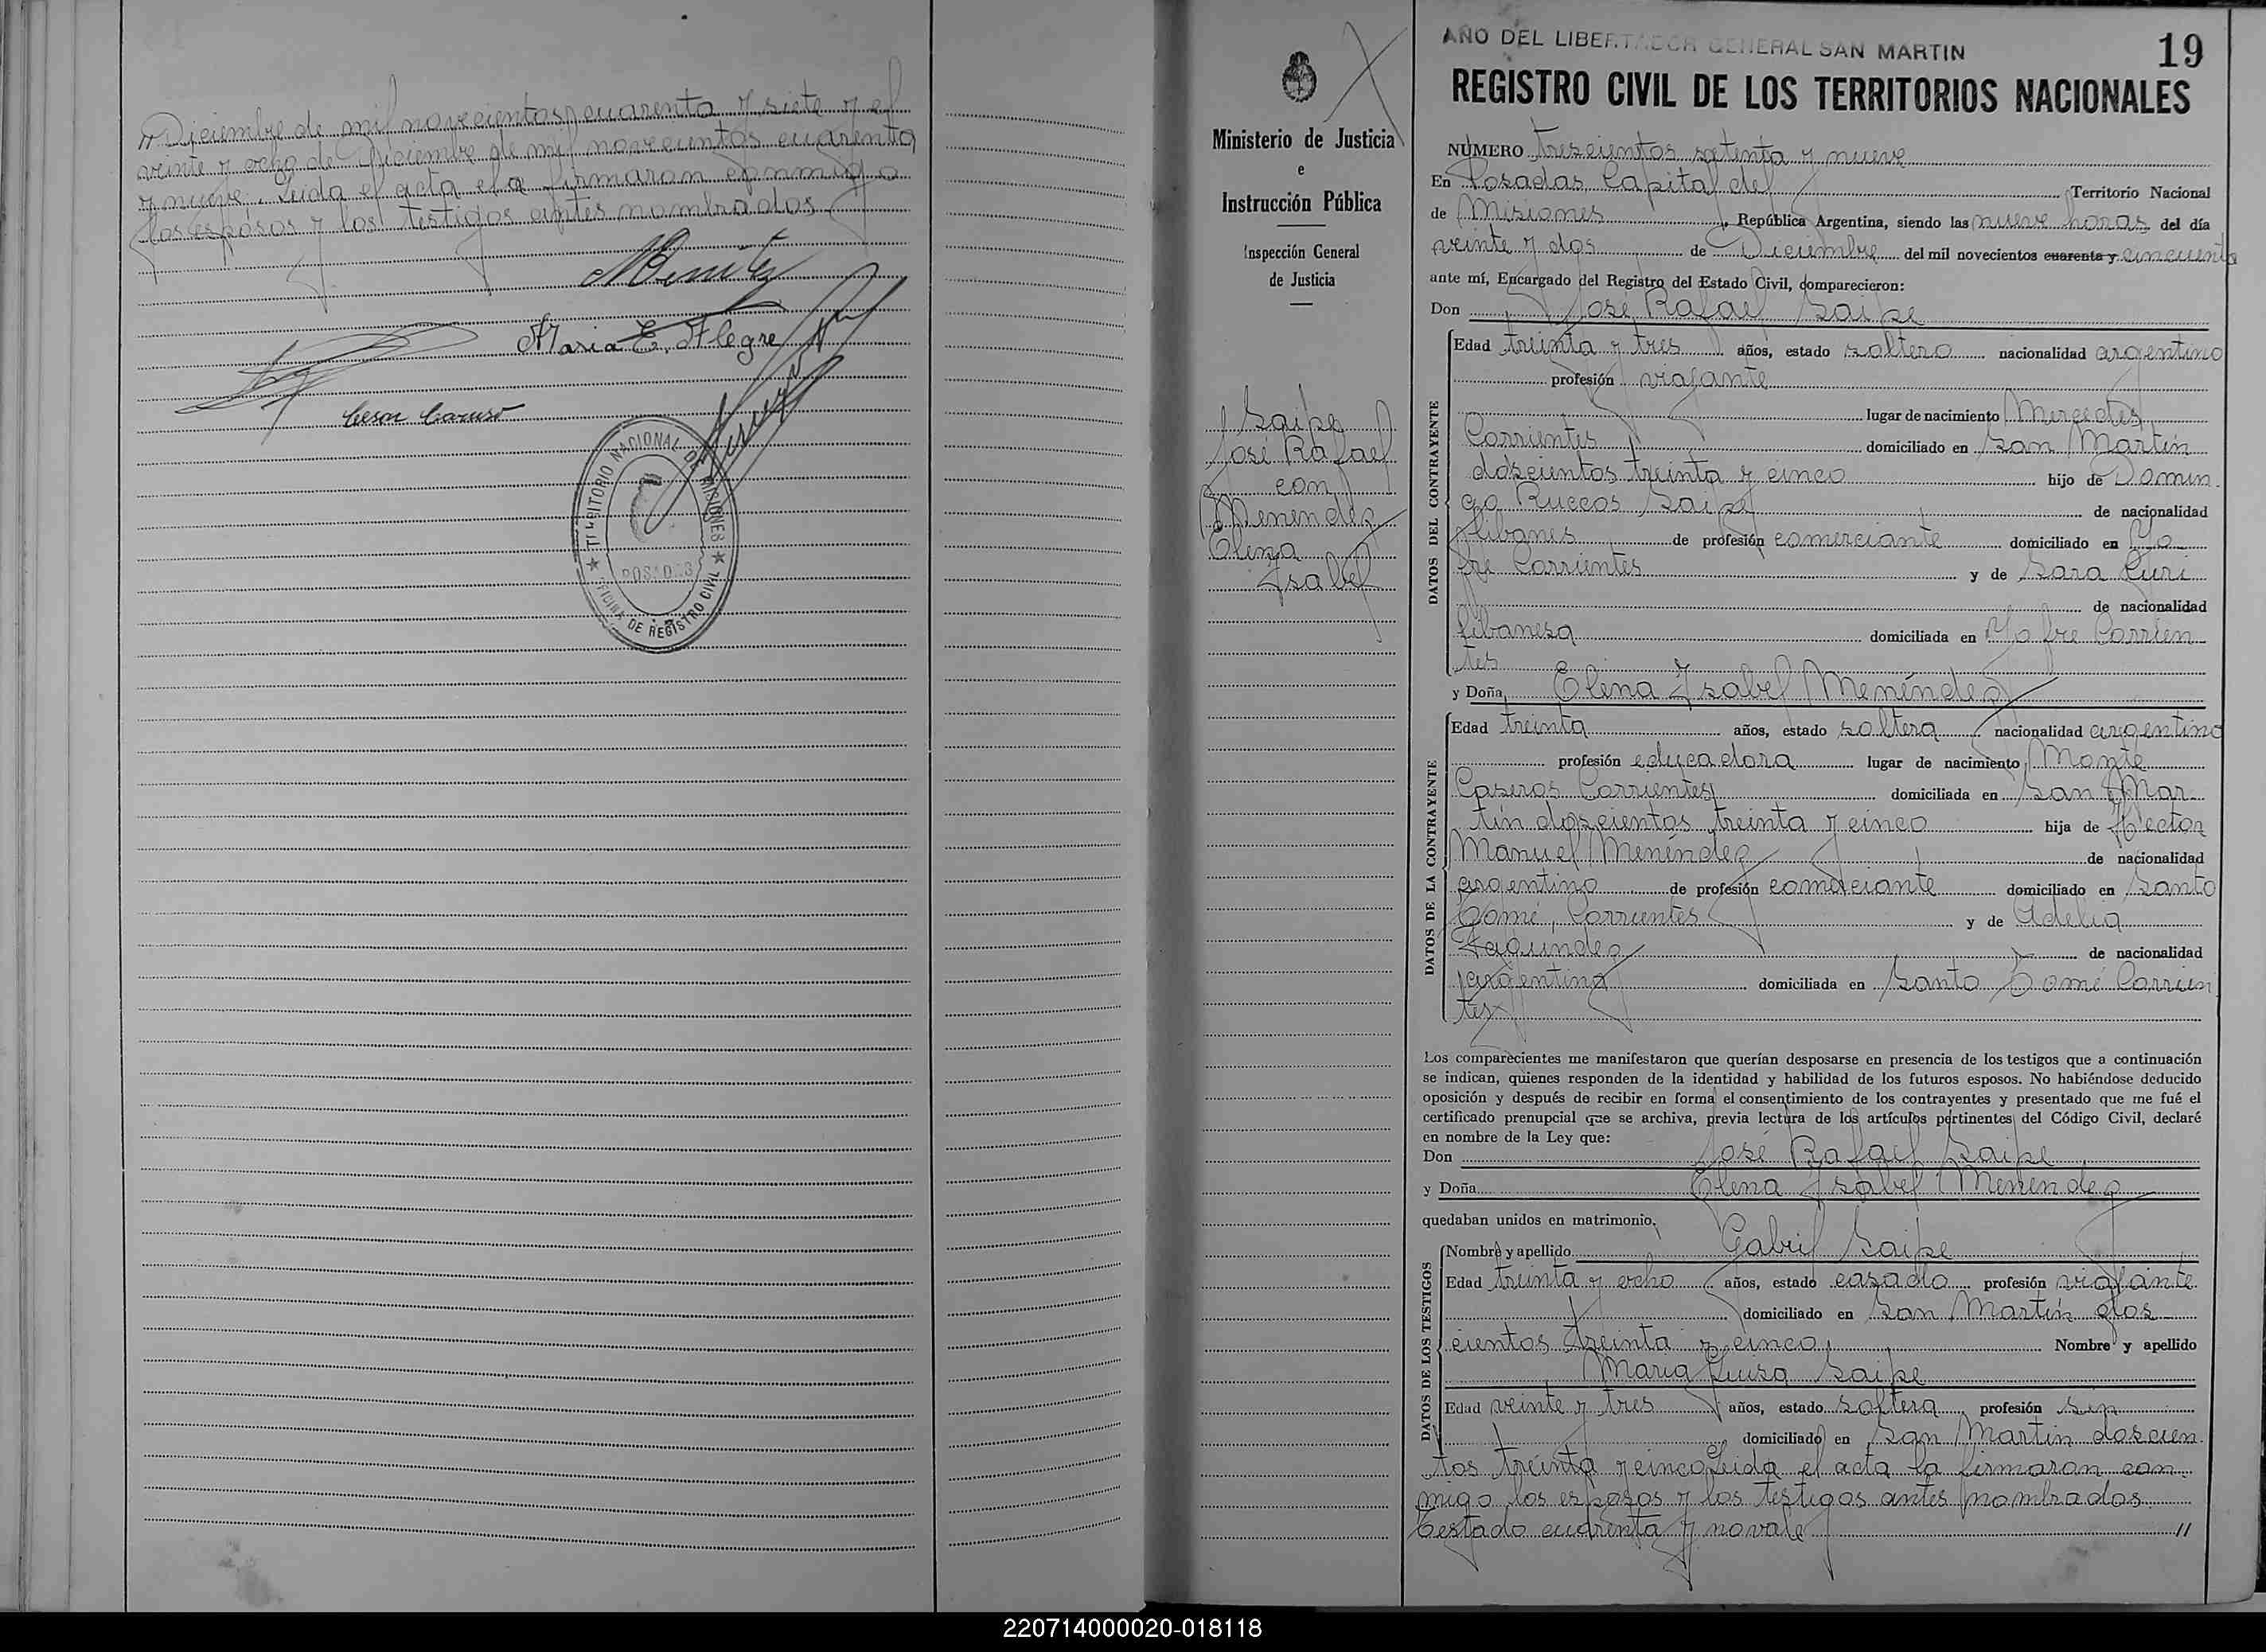 // Diciembre de mil novecientos cuarenta y siete y el
veinte y ocho de Diciembre de mil novecientos cuarenta
y nueve. Leida el acta ela firmaron conmigo
los esposos y los testigos antes nombrados
Maria E. Alegre
Cesar Caruso
TERRITORIO NACIONAL DE MISIONES
POSADAS
OFICINA DE REGISTRO CIVIL
Ministerio de Justicia
e
Instrucción Pública
Inspección General
de Justicia
Saipe
José Rafael
con
Menendez
Elena
Isabel
AÑO DEL LIBERTADOR GENERAL SAN MARTIN
19
REGISTRO CIVIL DE LOS TERRITORIOS NACIONALES
NÚMERO trescientos setenta y nueve
En Posadas Capital del Territorio Nacional
de Misiones, República Argentina, siendo las nueve horas del día
veinte y dos de Diciembre del mil novecientos cuarenta y cincuenta
ante mí, Encargado del Registro del Estado Civil, comparecieron:
Don José Rafael Saipe
DATOS DEL CONTRAYENTE
Edad treinta y tres años, estado soltero nacionalidad argentino
profesión viajante
lugar de nacimiento Mercedes
Corrientes domiciliado en San Martin
doscientos treinta y cinco hijo de Domin
go Ruccos Saipe de nacionalidad
libanes de profesión comerciante domiciliado en Yo
fre Corrientes y de Sara Curi
de nacionalidad
libanesa domiciliada en Yofre Corrien
tes
y Doña Elena Isabel Menéndez
DATOS DE LA CONTRAYENTE
Edad treinta años, estado soltera nacionalidad argentina
profesión educadora lugar de nacimiento Monte
Caseros Corrientes domiciliada en San Mar
tin doscientos treinta y cinco hija de Hector
Manuel Menéndez de nacionalidad
argentino de profesión comerciante domiciliado en Santo
Tomé, Corrientes y de Adelia
Fagundez de nacionalidad
argentina domiciliada en Santo Tomé Corrien
tes
Los comparecientes me manifestaron que querían desposarse en presencia de los testigos que a continuación
se indican, quienes responden de la identidad y habilidad de los futuros esposos. No habiéndose deducido
oposición y después de recibir en forma el consentimiento de los contrayentes y presentado que me fué el
certificado prenupcial que se archiva, previa lectura de los artículos pertinentes del Código Civil, declaré
en nombre de la Ley que:
Don José Rafael Saipe
y Doña Elena Isabel Menéndez
quedaban unidos en matrimonio.
DATOS DE LOS TESTIGOS
Nombre y apellido Gabril Saipe
Edad treinta y ocho años, estado casado profesión viajante
domiciliado en San Martin dos
cientos treinta y cinco Nombre y apellido
Maria Luisa Saipe
Edad veinte y tres años, estado soltera profesión sin
domiciliado en San Martin doscien
tos treinta y cinco Leida el acta la firmaron con
migo los esposos y los testigos antes nombrados.
Testado cuarenta y no vale //
220714000020-018118